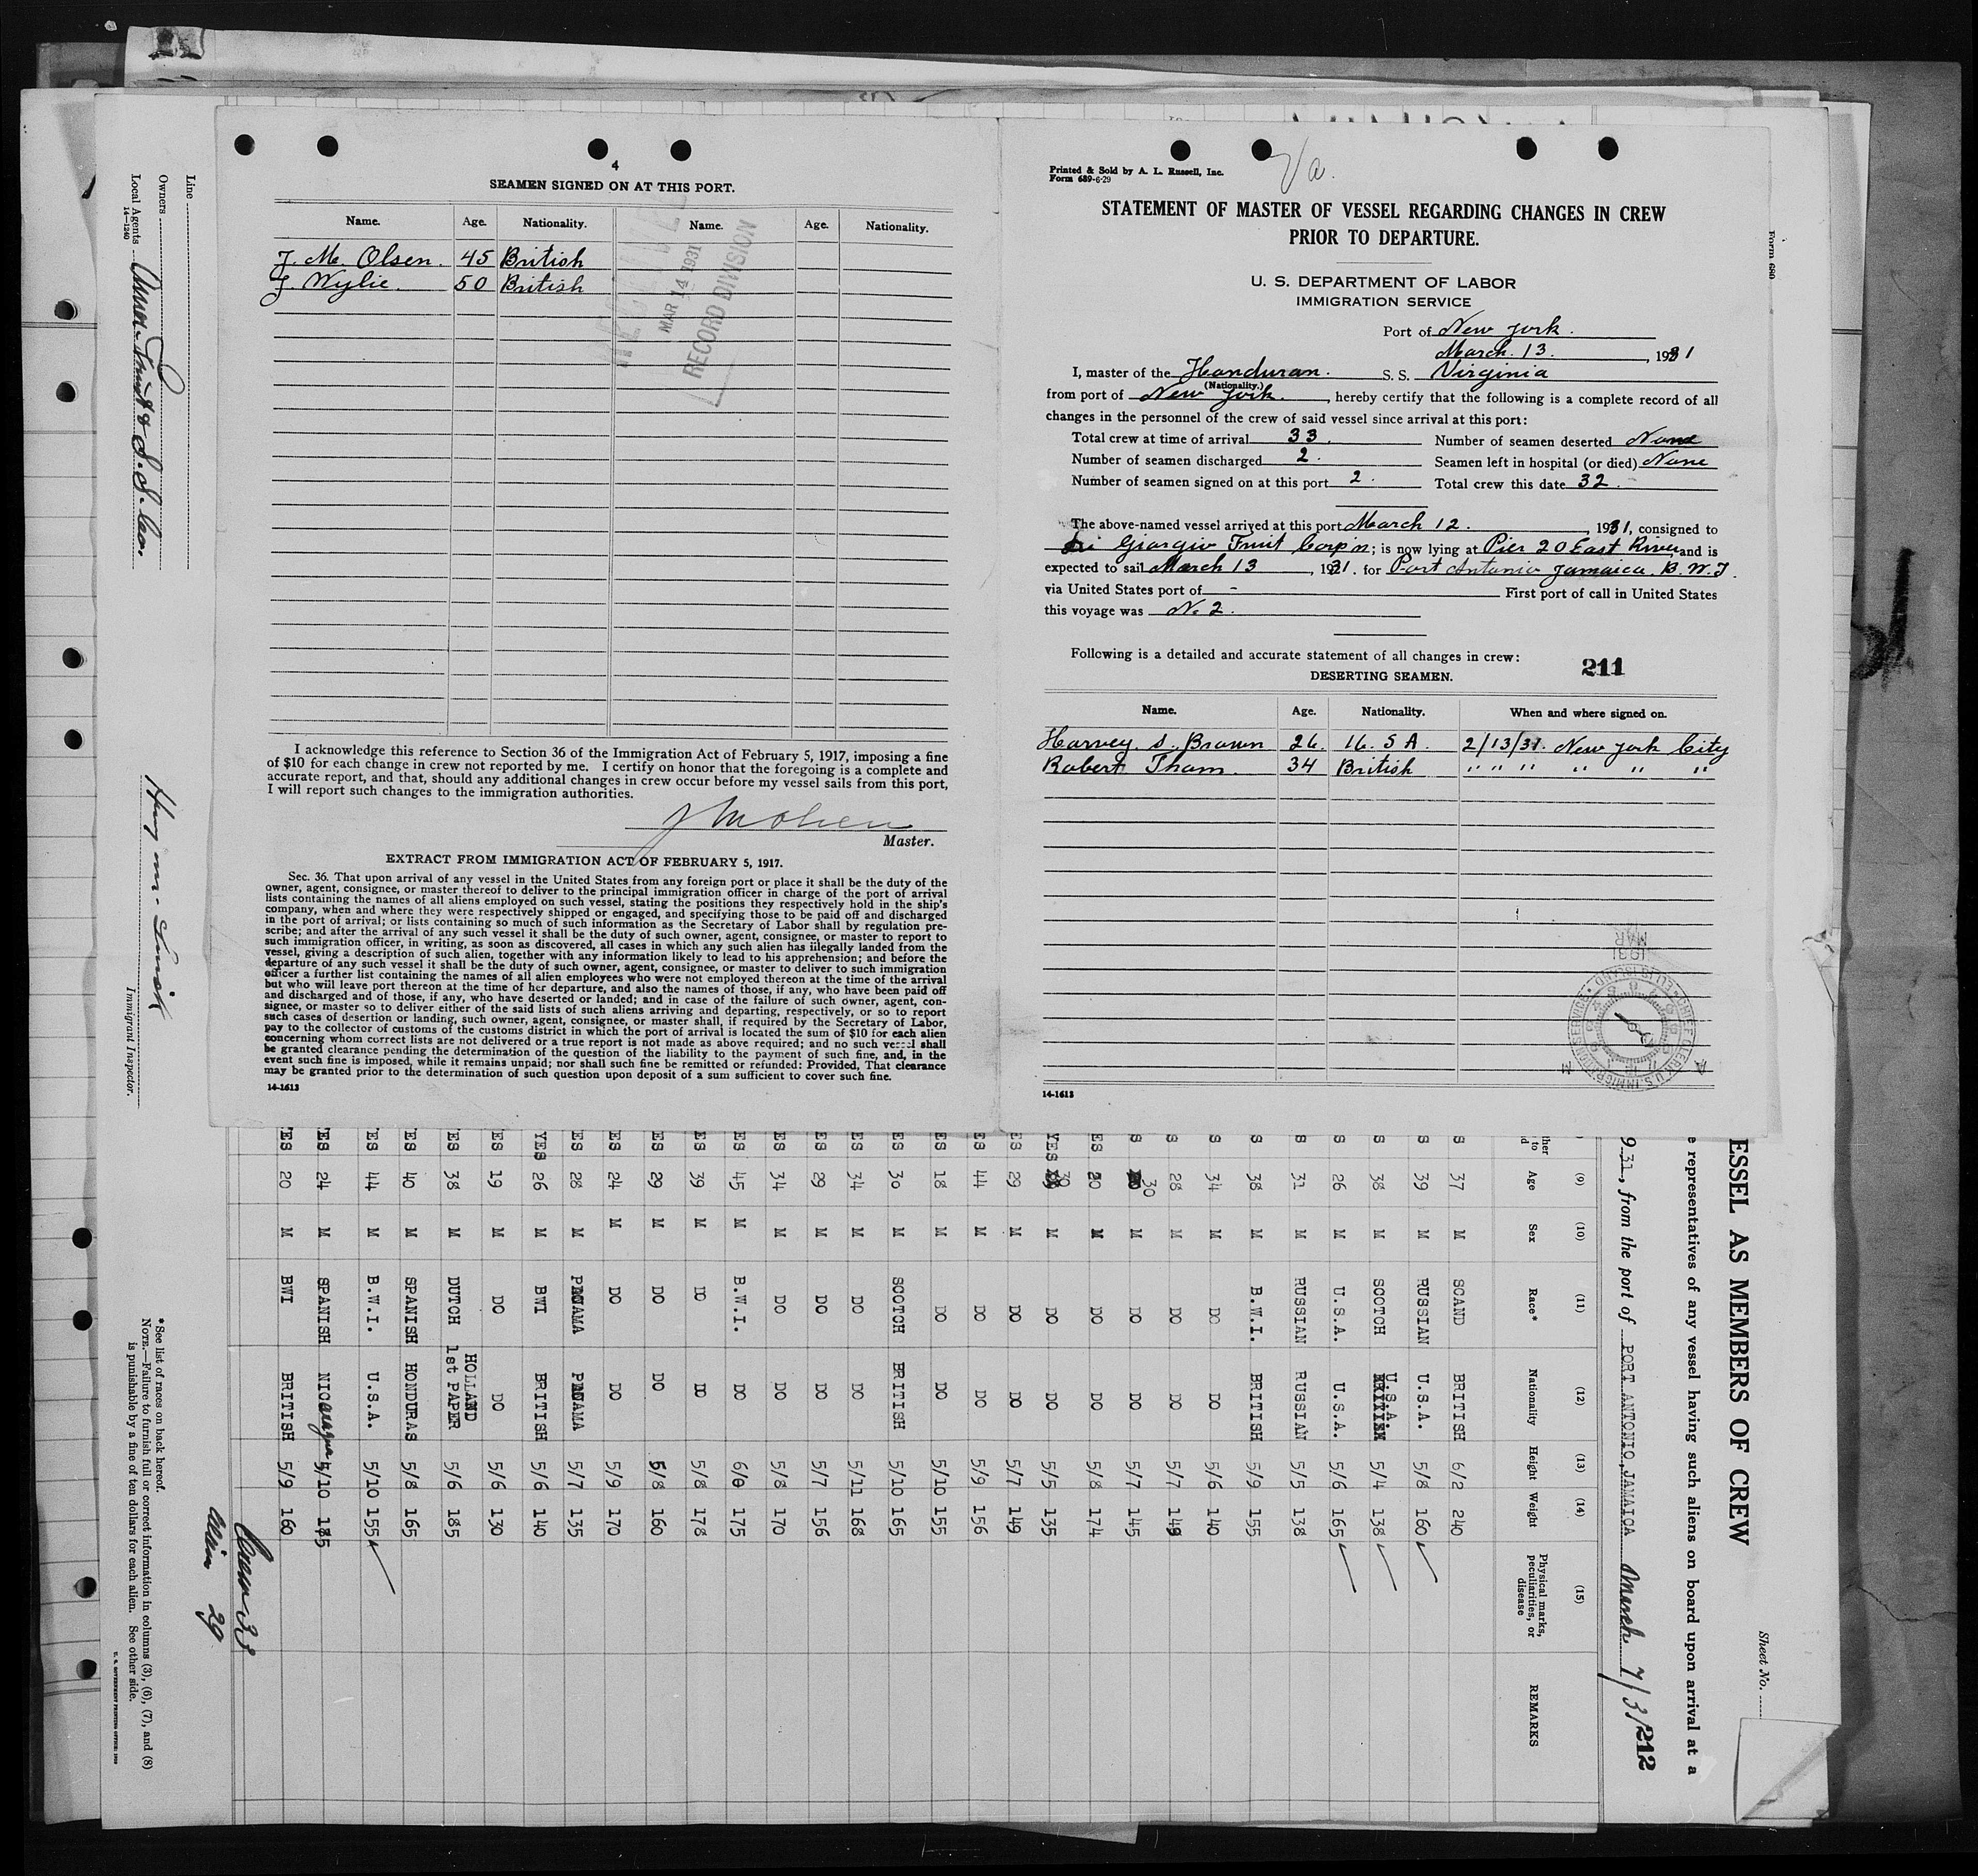 4
SEAMEN SIGNED ON AT THIS PORT.
Name. Age. Nationality. Name. Age. Nationality.
J. M. Olsen. 45 British
J. Wylie. 50 British
RECEIVED
MAR 14 1931
RECORD DIVISION
I acknowledge this reference to Section 36 of the Immigration Act of February 5, 1917, imposing a fine
of $10 for each change in crew not reported by me. I certify on honor that the foregoing is a complete and
accurate report, and that, should any additional changes in crew occur before my vessel sails from this port,
I will report such changes to the immigration authorities.
J M Olsen
Master.
EXTRACT FROM IMMIGRATION ACT OF FEBRUARY 5, 1917.
Sec. 36. That upon arrival of any vessel in the United States from any foreign port or place it shall be the duty of the
owner, agent, consignee, or master thereof to deliver to the principal immigration officer in charge of the port of arrival
lists containing the names of all aliens employed on such vessel, stating the positions they respectively hold in the ship's
company, when and where they were respectively shipped or engaged, and specifying those to be paid off and discharged
in the port of arrival; or lists containing so much of such information as the Secretary of Labor shall by regulation pre-
scribe; and after the arrival of any such vessel it shall be the duty of such owner, agent, consignee, or master to report to
such immigration officer, in writing, as soon as discovered, all cases in which any such alien has illegally landed from the
vessel, giving a description of such alien, together with any information likely to lead to his apprehension; and before the
departure of any such vessel it shall be the duty of such owner, agent, consignee, or master to deliver to such immigration
officer a further list containing the names of all alien employees who were not employed thereon at the time of the arrival
but who will leave port thereon at the time of her departure, and also the names of those, if any, who have been paid off
and discharged and of those, if any, who have deserted or landed; and in case of the failure of such owner, agent, con-
signee, or master so to deliver either of the said lists of such aliens arriving and departing, respectively, or so to report
such cases of desertion or landing, such owner, agent, consignee, or master shall, if required by the Secretary of Labor,
pay to the collector of customs of the customs district in which the port of arrival is located the sum of $10 for each alien
concerning whom correct lists are not delivered or a true report is not made as above required; and no such vessel shall
be granted clearance pending the determination of the question of the liability to the payment of such fine, and, in the
event such fine is imposed, while it remains unpaid; nor shall such fine be remitted or refunded: Provided, That clearance
may be granted prior to the determination of such question upon deposit of a sum sufficient to cover such fine.
14-1613
Printed & Sold by A. L. Russell, Inc.
Form 689-6-29
Va.
Form 680
STATEMENT OF MASTER OF VESSEL REGARDING CHANGES IN CREW
PRIOR TO DEPARTURE.
U. S. DEPARTMENT OF LABOR
IMMIGRATION SERVICE
Port of New York.
March. 13. , 1931
I, master of the Honduran. S. S. Virginia
(Nationality.)
from port of New York. , hereby certify that the following is a complete record of all
changes in the personnel of the crew of said vessel since arrival at this port:
Total crew at time of arrival 33. Number of seamen deserted None
Number of seamen discharged 2. Seamen left in hospital (or died) None
Number of seamen signed on at this port 2. Total crew this date 32.
The above-named vessel arrived at this port March 12. , 1931, consigned to
Di Giorgio Fruit Corp'n; is now lying at Pier 20 East River and is
expected to sail March 13 , 1931. for Port Antonio Jamaica. B.W.I.
via United States port of - First port of call in United States
this voyage was No 2.
Following is a detailed and accurate statement of all changes in crew:
211
DESERTING SEAMEN.
Name. Age. Nationality. When and where signed on.
Harvey. S. Brown 26. U.S A. 2/13/31. New York City
Robert Thom. 34 British " " " " " "
MAR
1931
CHIEF CLERK U.S. IMMIGRATION SERVICE ELLIS ISLAND
A M
14-1613
Line
Owners
Local Agents
14-1240
Immigrant Inspector.
ESSEL AS MEMBERS OF CREW
Sheet No.
e representatives of any vessel having such aliens on board upon arrival at a
9 31, from the port of PORT ANTONIO, JAMAICA March 7/31
212
(9) (10) (11) (12) (13) (14) (15)
Age Sex Race* Nationality Height Weight Physical marks, peculiarities, or disease REMARKS
S 37 M SCAND BRITISH 6/2 240
S 39 M RUSSIAN U.S.A. 5/8 160
S 38 M SCOTCH U.S.A. BRITISH 5/4 138
S 26 M U.S.A. U.S.A. 5/6 165
S 31 M RUSSIAN RUSSIAN 5/5 138
S 38 M B.W.I. BRITISH 5/9 155
S 34 M DO DO 5/6 140
S 28 M DO DO 5/7 149
S 30 M DO DO 5/7 145
ES 20 M DO DO 5/8 174
YES 30 M DO DO 5/5 135
ES 29 M DO DO 5/7 149
ES 44 M DO DO 5/9 156
ES 18 M DO DO 5/10 155
ES 30 M SCOTCH BRITISH 5/10 165
ES 34 M DO DO 5/11 168
ES 29 M DO DO 5/7 156
ES 34 M DO DO 5/8 170
ES 45 M B.W.I. DO 6/0 175
ES 39 M DO DO 5/8 178
ES 29 M DO DO 5/8 160
ES 24 M DO DO 5/9 170
ES 28 M PANAMA PANAMA 5/7 135
YES 26 M BWI BRITISH 5/6 140
ES 19 M DO DO 5/6 130
ES 38 M DUTCH HOLLAND 1st PAPER 5/6 185
ES 40 M SPANISH HONDURAS 5/8 165
ES 44 M B.W.I. U.S.A. 5/10 155
ES 24 M SPANISH NICaragua 5/10
ES 20 M BWI BRITISH 5/9 160
Crew 33
Alien 29
*See list of races on back hereof.
NOTE.—Failure to furnish full or correct information in columns (3), (6), (7), and (8)
is punishable by a fine of ten dollars for each alien. See other side.
U. S. GOVERNMENT PRINTING OFFICE: